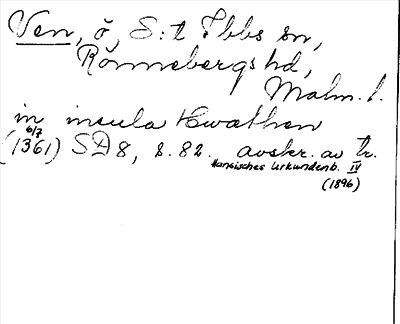 Ven, ö, S:t Ibbs sn,
Rönnebergs hd,
Malm. l.
in insula Hwæthen
6/7
(1361) SD 8, s. 82. avskr. av tr.
Hansisches Urkundenb. IV
(1896)